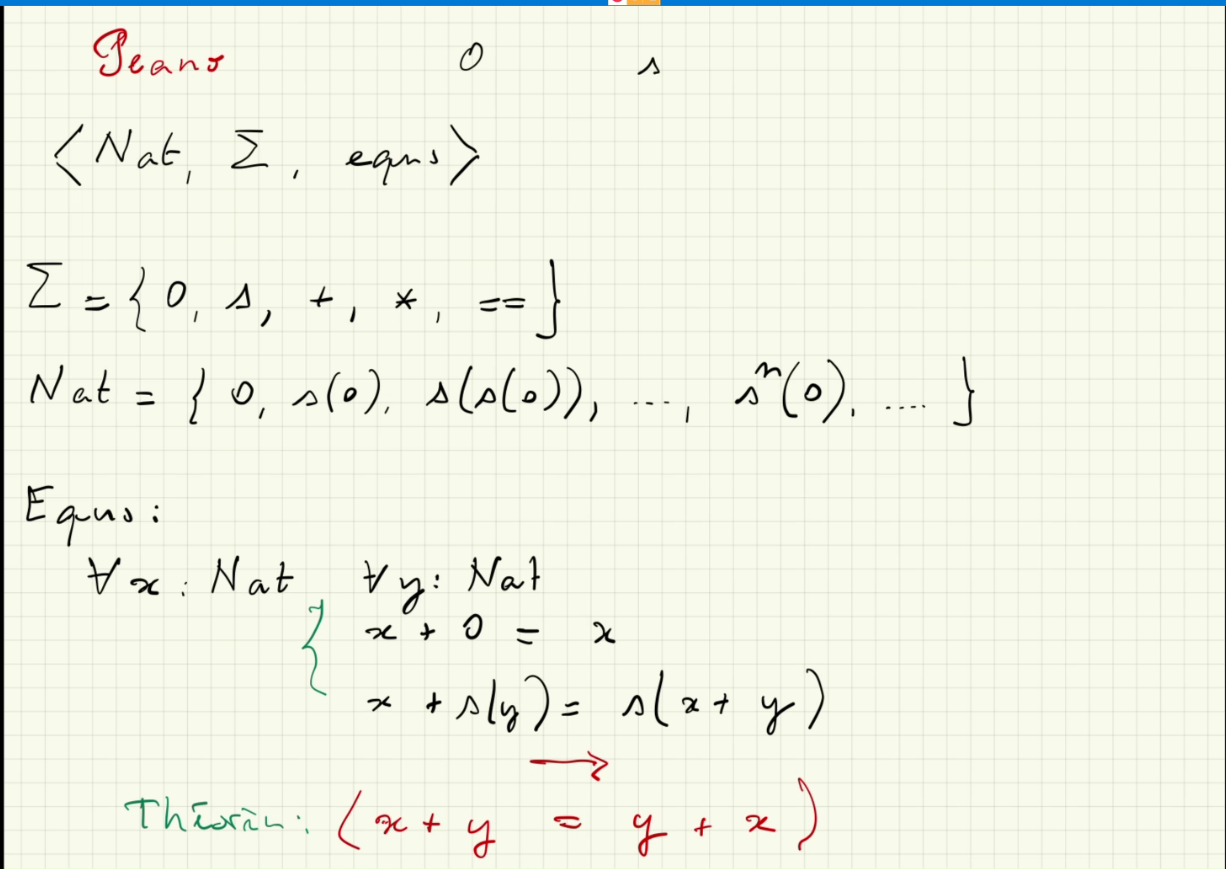 Peano 0 s
<Nat, Σ, eqns>
Σ = { 0, s, +, *, == }
Nat = { 0, s(0), s(s(0)), ..., sⁿ(0), .... }
Eqns:
∀x: Nat ∀y: Nat
{ x + 0 = x
x + s(y) = s(x + y)
→
Théorèm: (x + y = y + x)